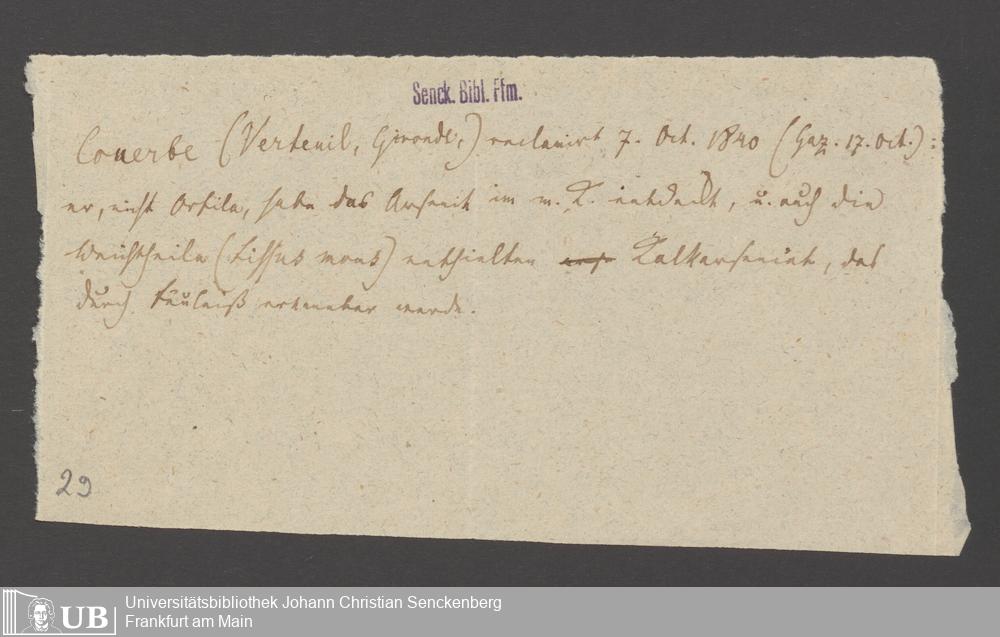 Senck. Bibl. Ffm.
Couerbe (Verteuil, Gironde,) reclamirt 7. Oct. 1840 (Gaz. 17. Oct.):
er, nicht Orfila, habe das Arsenik im m. K. entdeckt, u. auch die
Weichtheile (tissus mous) enthielten Kalkarseniat, das
durch Fäulniß erkennbar werde.
29
UB Universitätsbibliothek Johann Christian Senckenberg
Frankfurt am Main